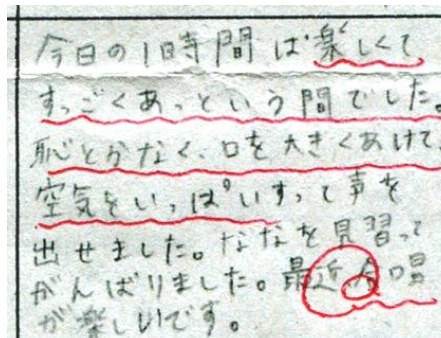 今日の1時間は楽しくて
すっごくあっという間でした。
恥とかなく、口を大きくあけて、
空気をいっぱいすって声を
出せました。ななを見習って
がんばりました。最近合唱
が楽しいです。